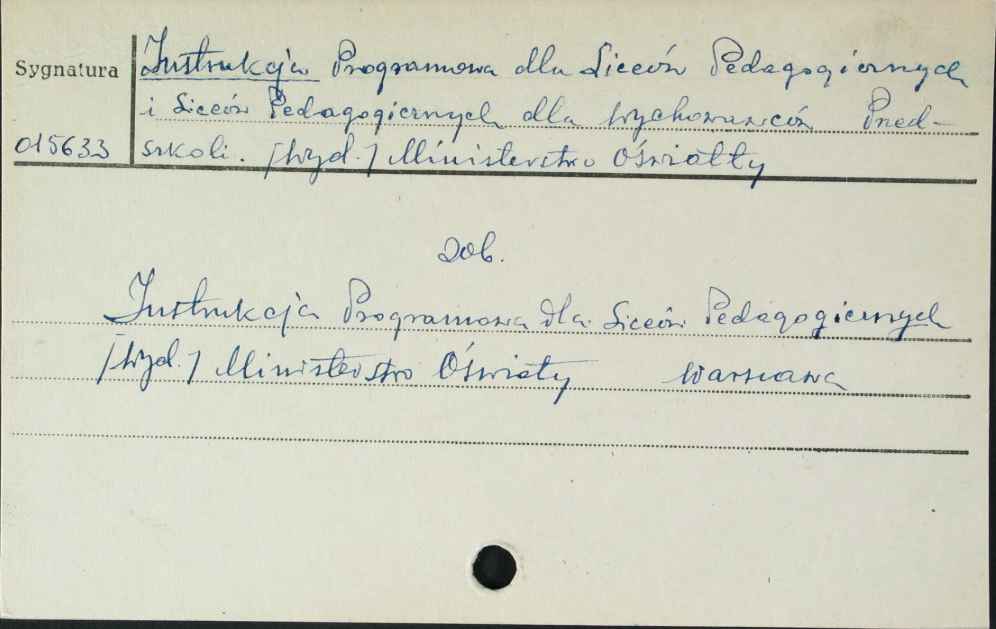 Sygnatura
Instrukcja Programowa dla Liceów Pedagogicznych
i Liceów Pedagogicznych dla Wychowawców Przed-
015633 szkoli. [Wyd.] Ministerstwo Oświaty
Zob.
Instrukcja Programowa dla Liceów Pedagogicznych
[Wyd.] Ministerstwo Oświaty Warszawa